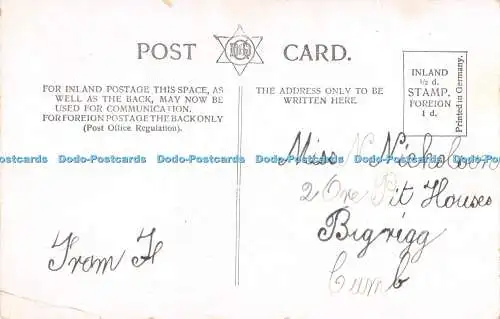 POST CARD.
FOR INLAND POSTAGE THIS SPACE, AS
WELL AS THE BACK, MAY NOW BE
USED FOR COMMUNICATION.
FOR FOREIGN POSTAGE THE BACK ONLY
(Post Office Regulation).
THE ADDRESS ONLY TO BE
WRITTEN HERE.
INLAND
½ d.
STAMP.
FOREIGN
1 d.
Printed in Germany.
Dodo-Postcards Dodo-Postcards Dodo-Postcards Dodo-Postcards Dodo-Postcards
Miss N Nicholson
2 Ore Pit Houses
Bigrigg
Cumb
From H